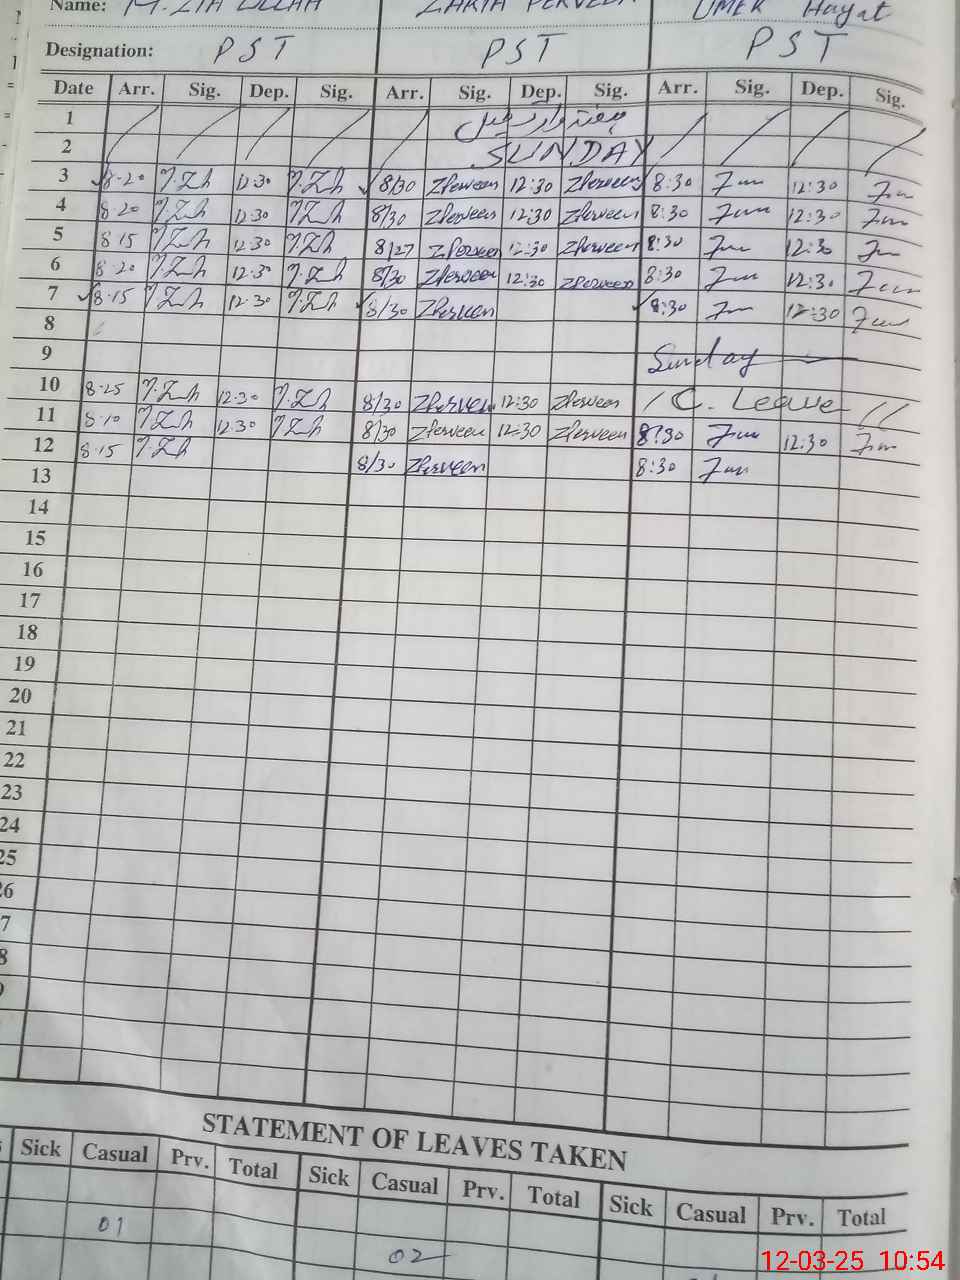 Name: M. ZIA ULLAH ZAKIA PERVEEN UMER Hayat
Designation: PST PST PST
Date Arr. Sig. Dep. Sig. Arr. Sig. Dep. Sig. Arr. Sig. Dep. Sig.
1
2 SUNDAY
3 8-20 12:30 8/30 ZPerveen 12:30 ZPerveen 8:30 12:30
4 8-20 12:30 8/30 ZPerveen 12:30 ZPerveen 8:30 12:30
5 8-15 12:30 8/27 ZPerveen 12:30 ZPerveen 8:30 12:30
6 8-20 12:30 8/30 ZPerveen 12:30 ZPerveen 8:30 12:30
7 8-15 12-30 8/30 ZPerveen 8:30 12:30
8
9 Sunday
10 8-25 12-30 8/30 ZPerveen 12:30 ZPerveen C. Leave
11 8-10 12-30 8/30 ZPerveen 12:30 ZPerveen 8:30 12:30
12 8-15 8/30 ZPerveen 8:30
13
14
15
16
17
18
19
20
21
22
23
24
25
26
7
8
9
STATEMENT OF LEAVES TAKEN
Sick Casual Prv. Total Sick Casual Prv. Total Sick Casual Prv. Total
01
02
12-03-25 10:54